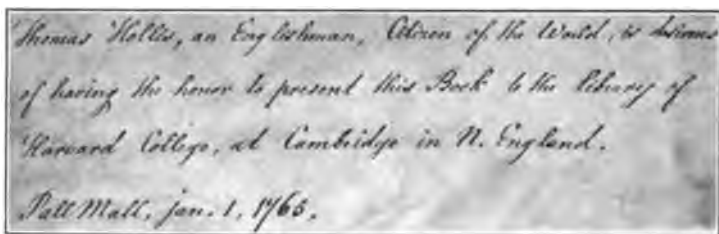 Thomas Hollis, an Englishman, Citizen of the World, is desirous
of having the honor to present this Book to the library of
Harvard College, at Cambridge in N. England.
Pall Mall, jan. 1, 1765.